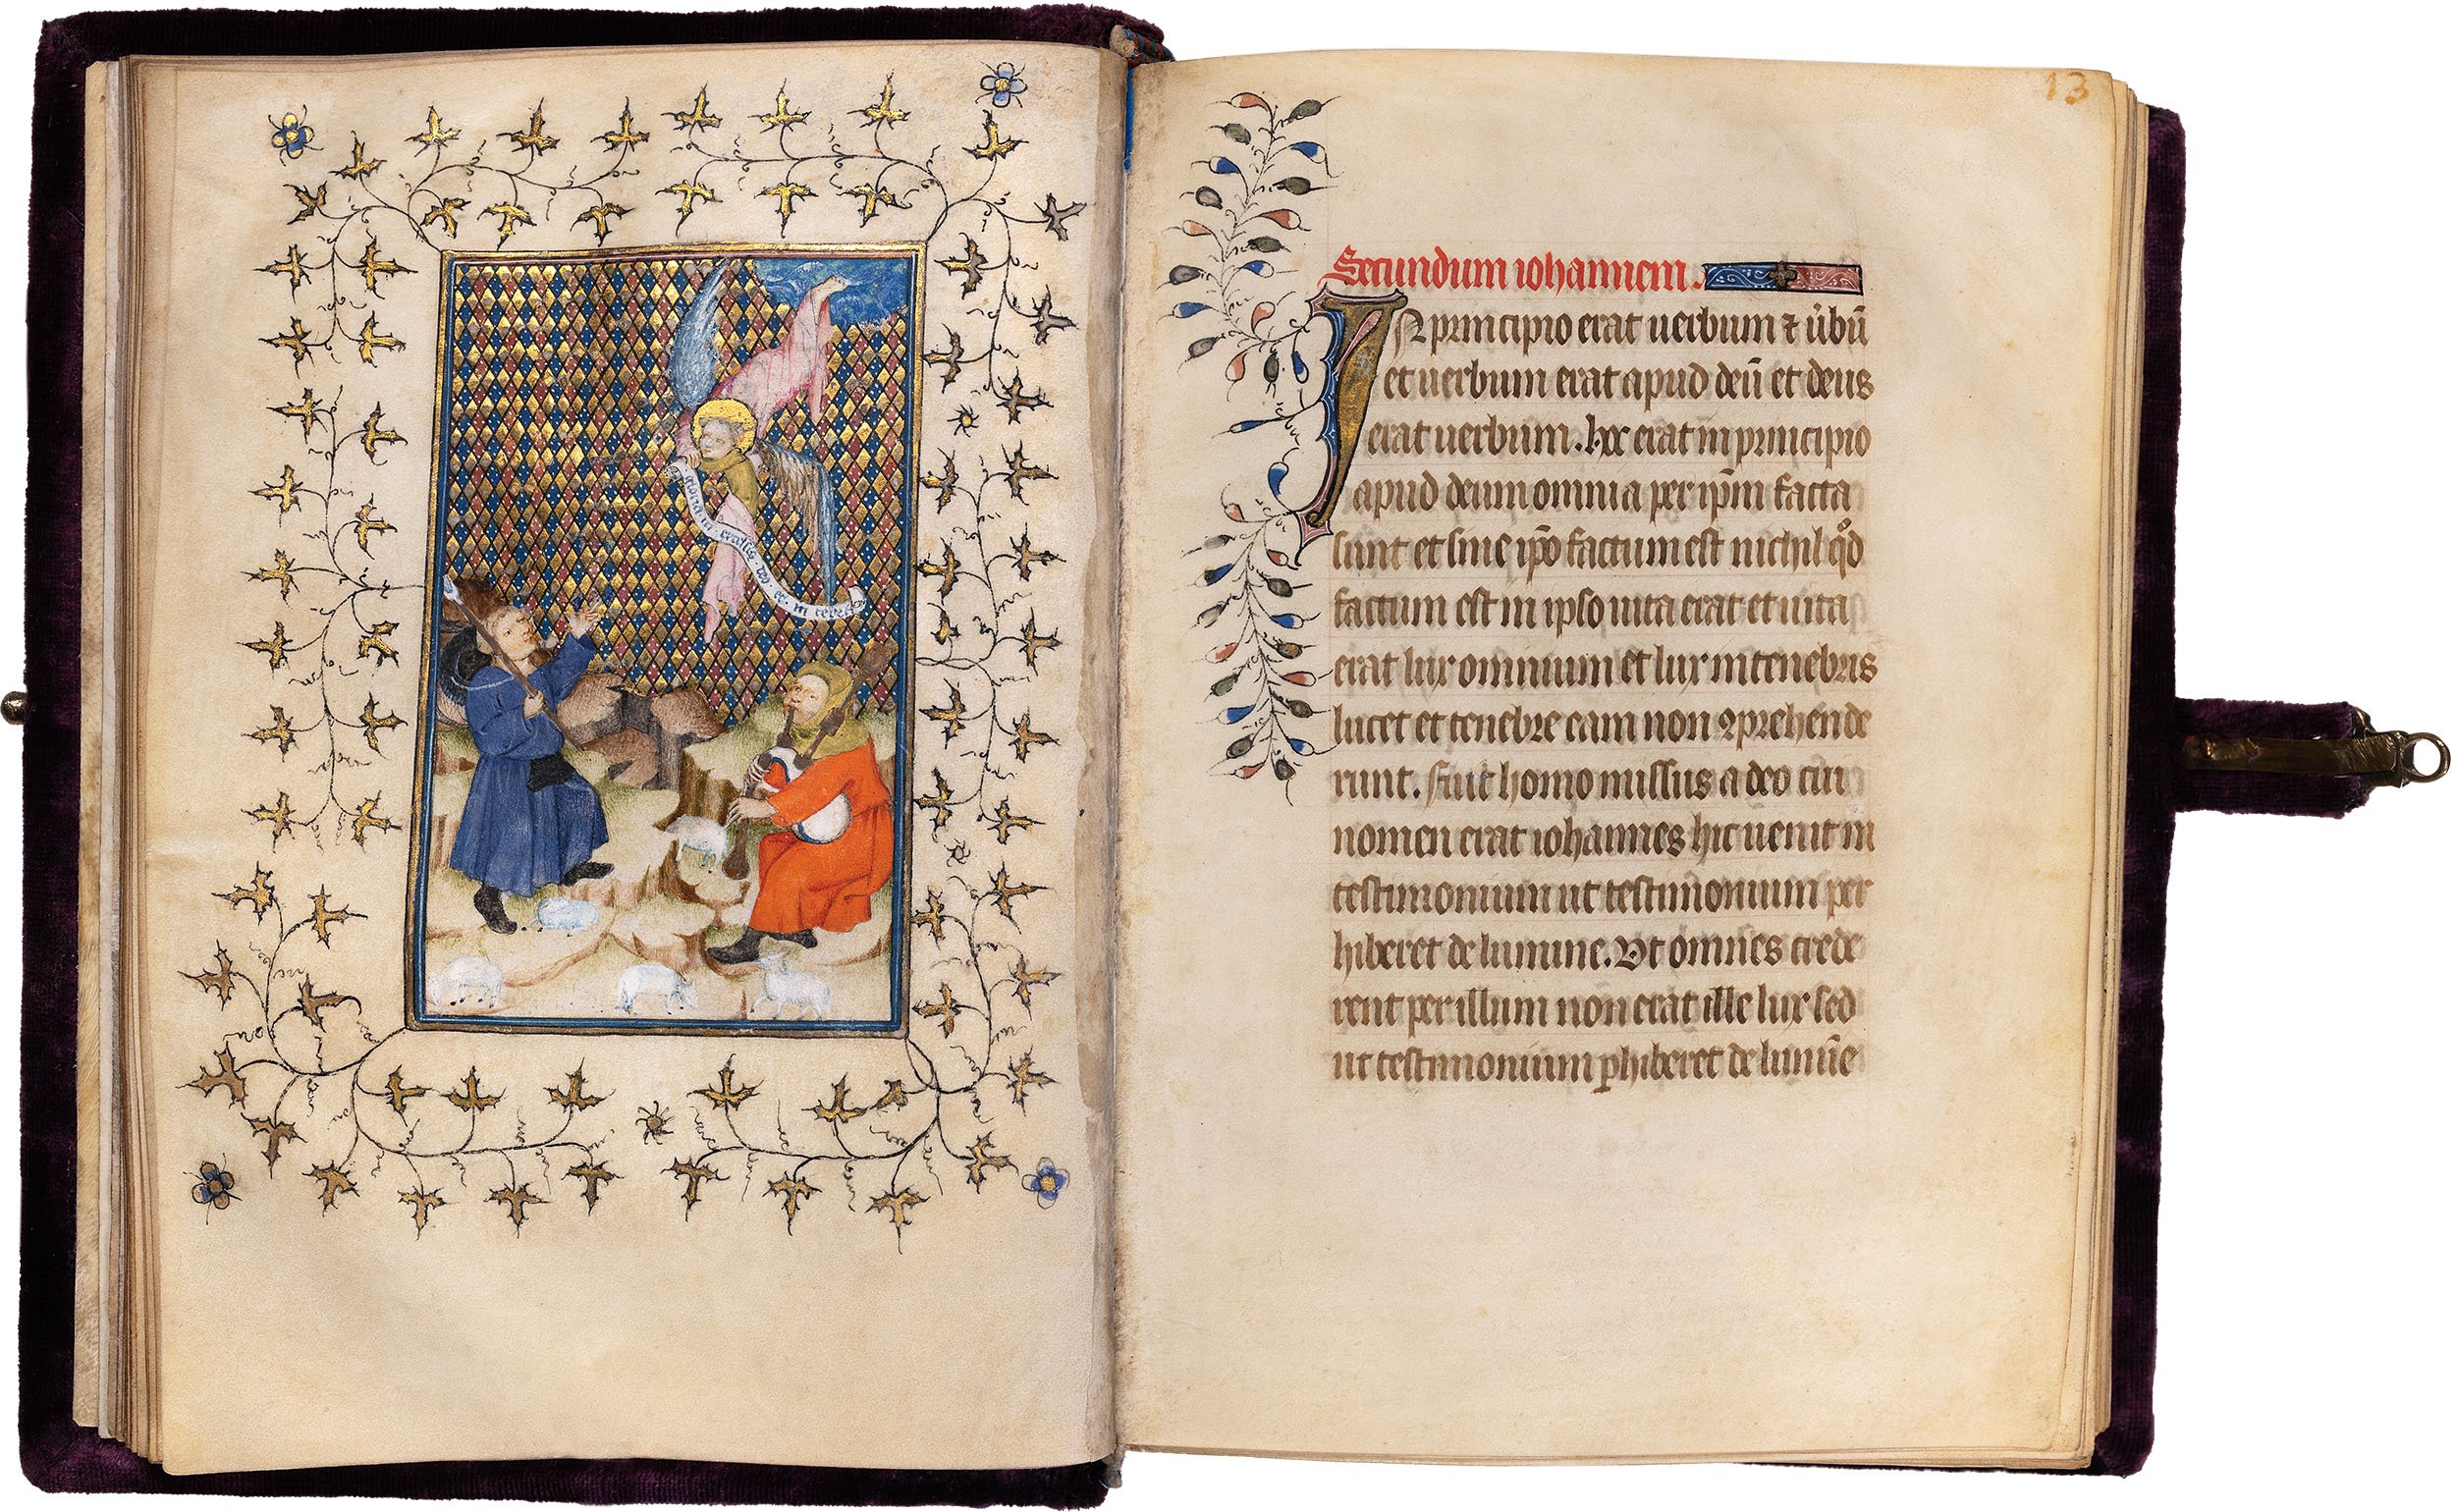 gloria in excelsis deo et in terra
13
Secundum iohannem.
IN principio erat uerbum ⁊ ůbū
et uerbum erat apud deū et deus
erat uerbum. hoc erat in principio
apud deum omnia per ip̄m facta
sunt et sine ip̄o factum est nichil qd̊
factum est in ipso uita erat et uita
erat lux ominium et lux in tenebris
lucet et tenebre eam non ꝯprehende
runt. fuit homo missus a deo cui
nomen erat iohannes hic uenit in
testimonium ut testimonium per
hiberet de lumine. Vt omnes crede
rent per illum non erat ille lux sed
ut testimonium ꝑhiberet de lumīe